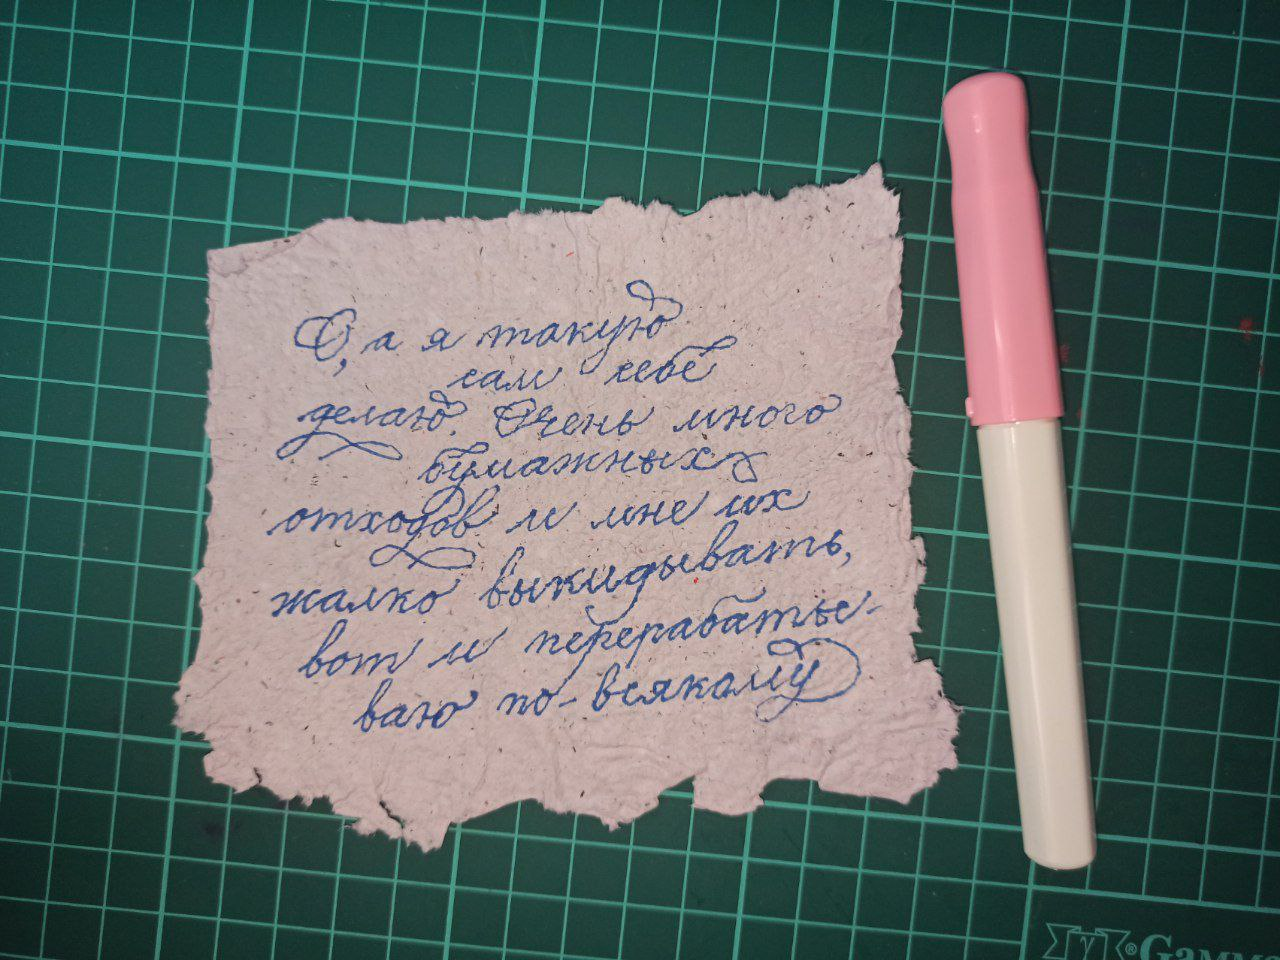 О, а я такую
сам себе
делаю. Очень много
бумажных
отходов и мне их
жалко выкидывать,
вот и перерабаты-
ваю по-всякому
γ®Gamm